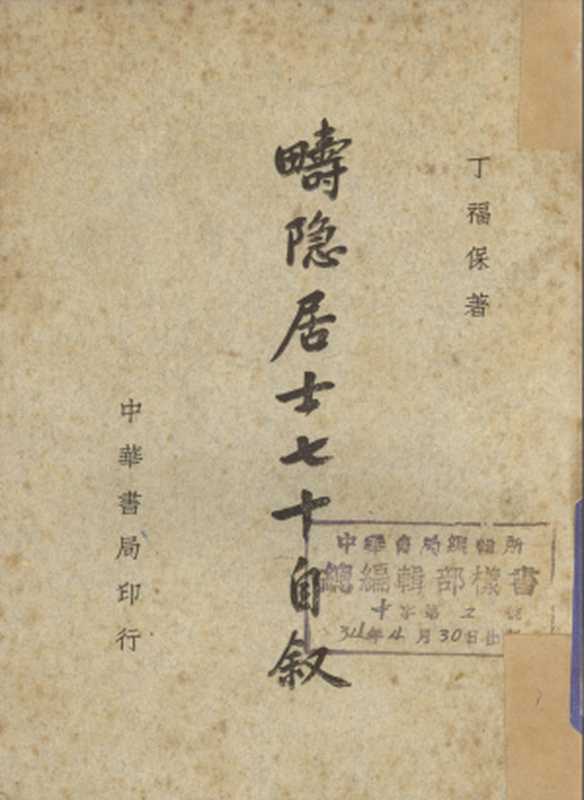 丁福保著
疇隐居士七十自叙
中華書局印行
中華書局編輯所
總編輯部樣書
十字第2號
34年4月30日出